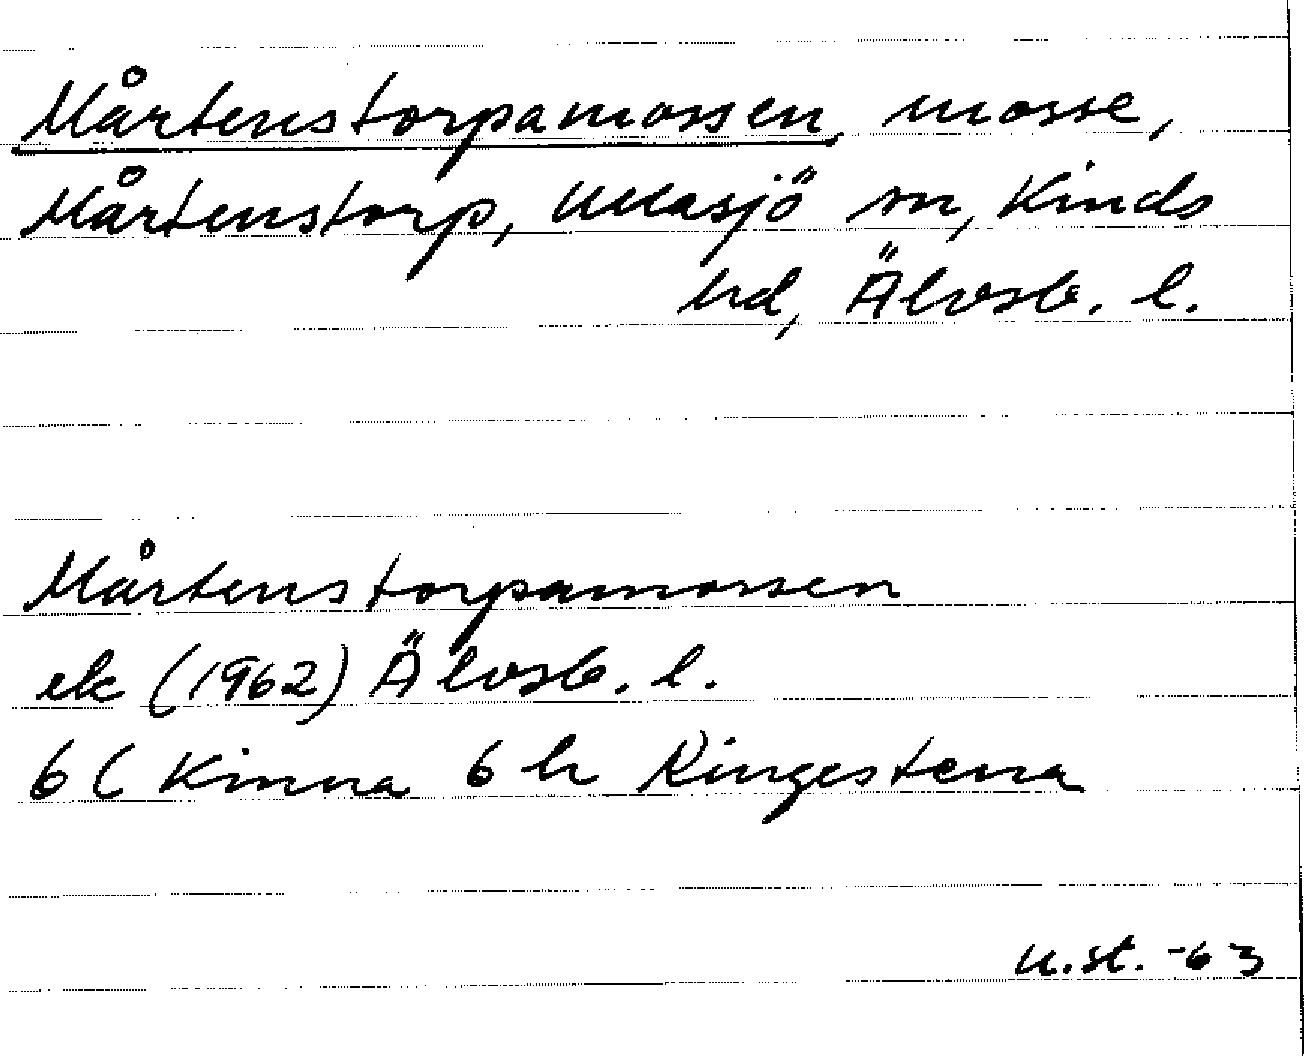 Mårtenstorpamossen, mosse,
Mårtenstorp, Ullasjö sn, Kinds
hd, Älvsb. l.
Mårtenstorpamossen
ek (1962) Älvsb. l.
6 C Kinna 6 h Ringestena
u.st. -63